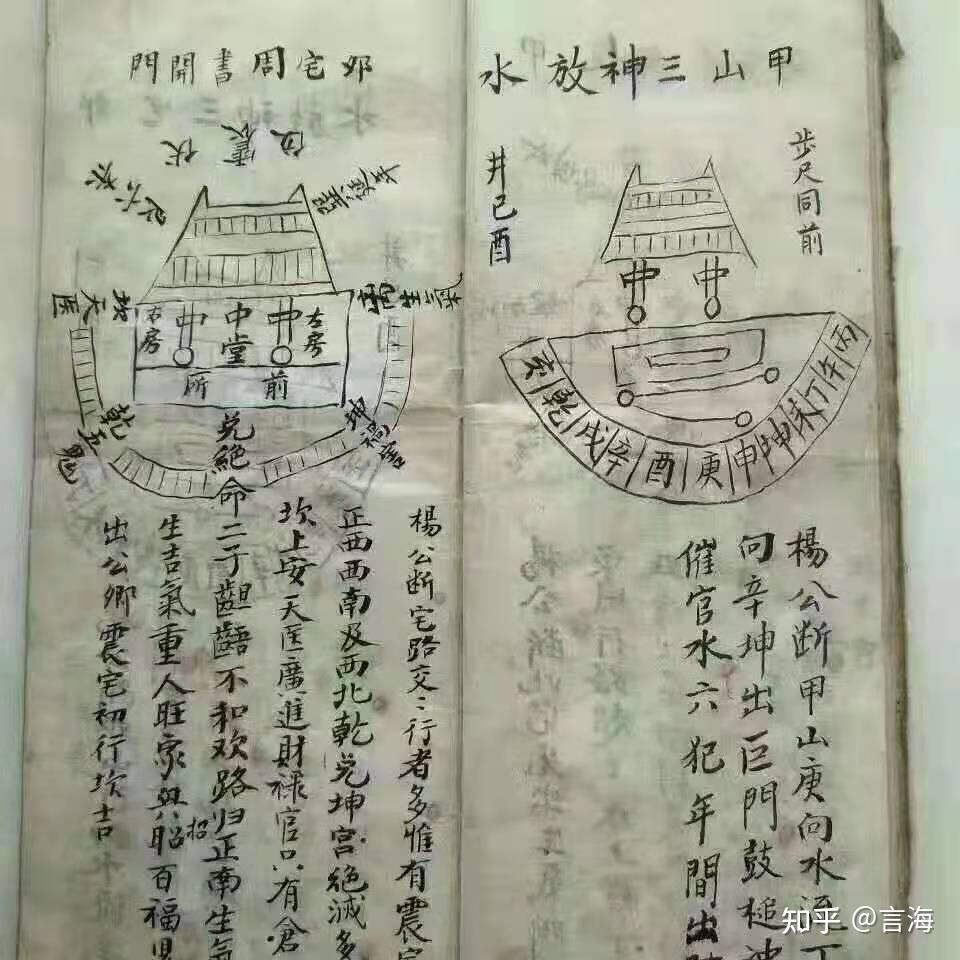 甲山三神放水
步尺同前
井己酉
中 中
丙午丁未坤申庚酉辛戌乾亥
楊公断甲山庚向水流丁
向辛坤出巨門鼓槌神
催官水六犯年間出
卯宅周書開門
震伏位
離生氣
坎天医
左房
中堂
右房
中 中
前所
坤禍害
乾五鬼
兌絕命
楊公断宅路交〻行者多惟有震宅
正西西南及西北乾兌坤宮絕滅多
坎上安天医廣進財禄官只有倉
二子齟齬不和欢路归正南生氣
生吉氣重人旺家興招百福
招
出公卿震宅初行坎吉
知乎 @言海